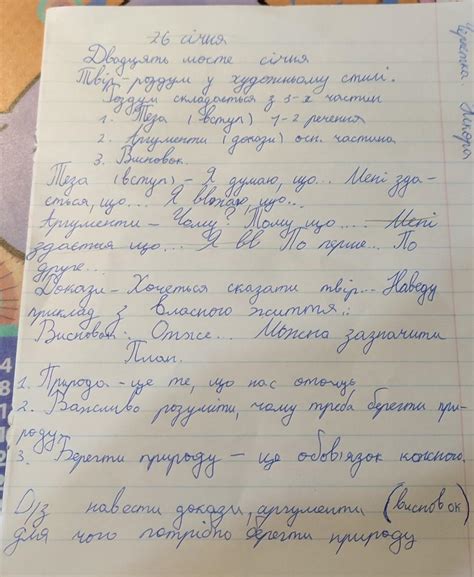 26 січня
Двадцять шосте січня
Твір-роздум у художньому стилі.
Роздум складається з 3-х частин
1. Теза (вступ) 1-2 речення
2. Аргументи (докази) осн. частина
3. Висновок.
Теза (вступ) - Я думаю, що... Мені зда-
ється, що... Я вважаю, що...
Аргументи - Чому? Тому, що.... Мені
здається що... Я вв По перше... По
друге...
Докази - Хочеться сказати твір... Наведу
приклад з власного життя...
Висновок. Отже... Можна зазначити
План.
1. Природа - це те, що нас оточує
2. Важливо розуміти, чому треба берегти при-
роду.
3. Берегти природу - це обов'язок кожного.
Д/з навести докази, аргументи (висновок)
для чого потрібно берегти природу